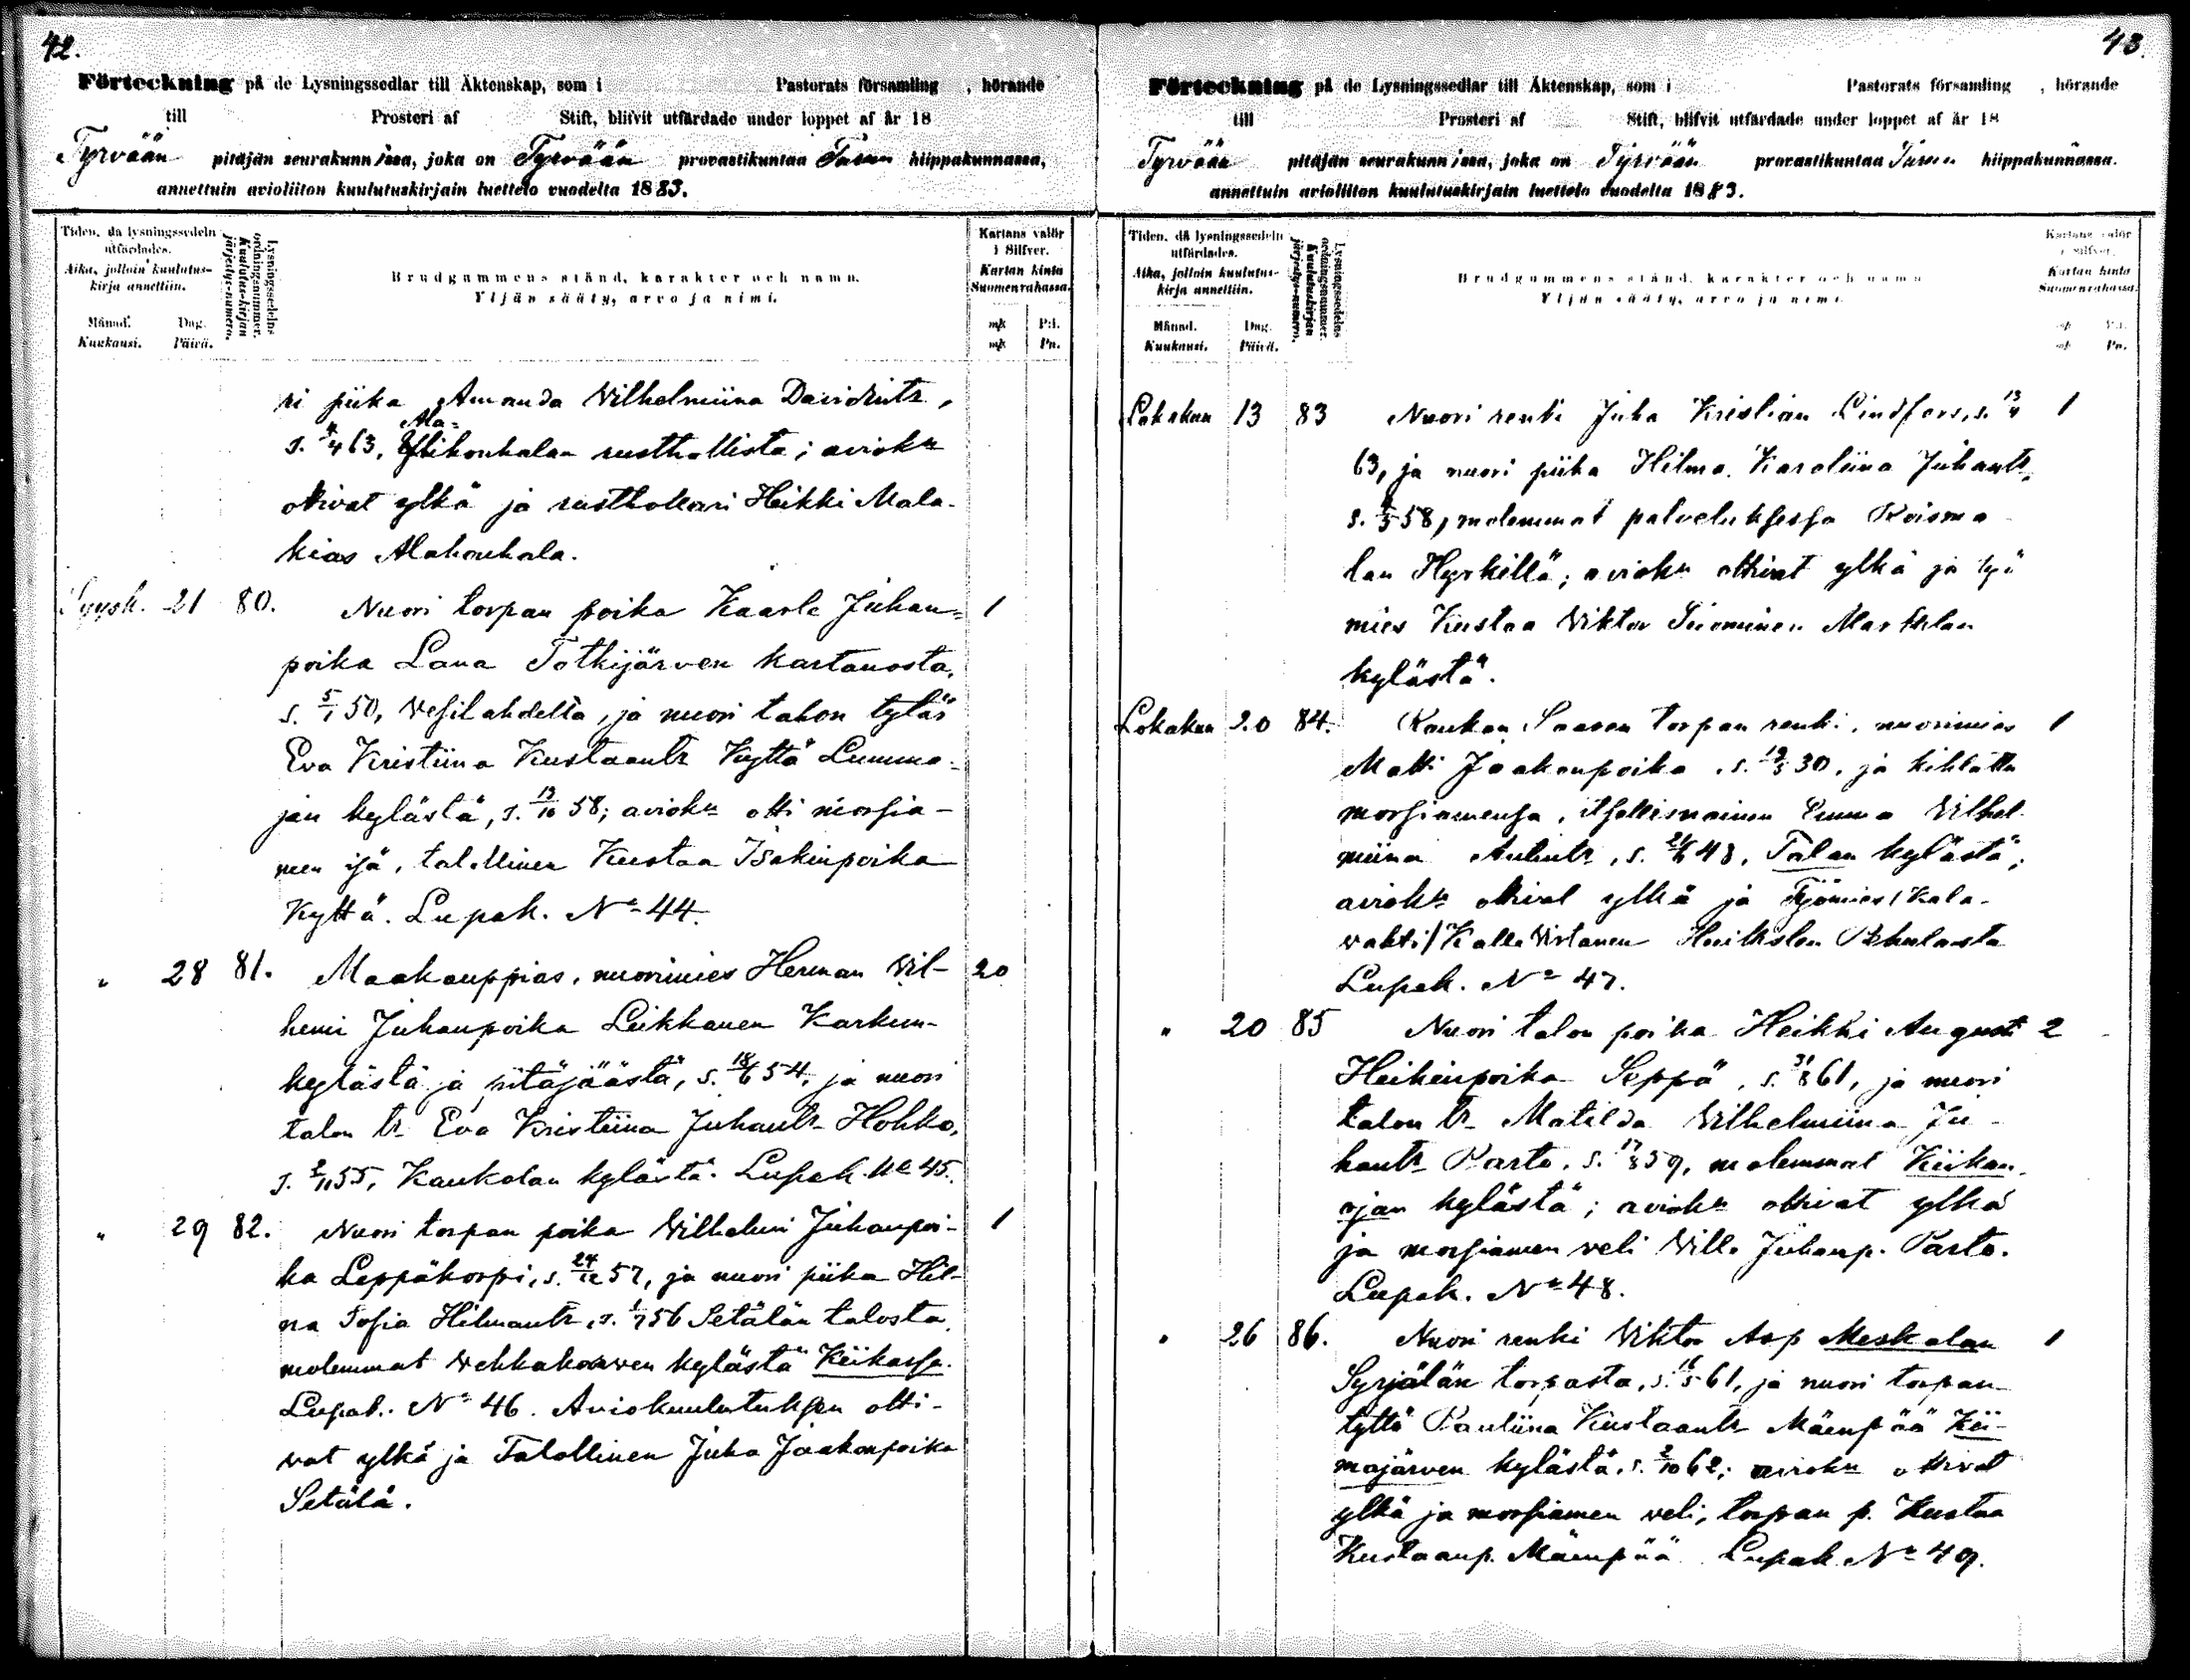 42.
Förteckning på de Lysningssedlar till Äktenskap, som i Pastorats församling , hörande
till Prosteri af Stift, blifvit utfärdade under loppet af år 18
Tyrvään pitäjän seurakunnissa, joka on Tyrvään provastikuntaa Turun hiippakunnassa,
annettuin avioliiton kuulutuskirjain luettelo vuodelta 1883.
Tiden, då lysningssedeln utfärdades.
Aika, jolloin kuulutuskirja annettiin.
Månad. Dag.
Kuukausi. Päivä.
Lysningssedelns ordningsnummer.
Kuulutus-kirjan järjestys-numero.
Brudgummens stånd, karakter och namn.
Yljän sääty, arvo ja nimi.
Kartans valör i Silfver.
Kartan hinta Suomenrahassa.
mk Pi.
mk Pn.
ri piika Amanda Vilhelmiina Davidintr,
Ala-
s. 4/4 63, rusthollista; aviokn
ottivat ylkä ja rusthollari Heikki Mala-
kias Alahouhala.
Syysk. 21 80. Nuori torpan poika Kaarle Juhan- 1
poika Lana Totkijärven kartanosta,
s. 5/1 50, Vesilahdelta, ja nuori talon tytär
Eva Kristiina Kustaantr Kyttä Lummo-
jan kylästä, s. 13/10 58; aviokn otti morsia-
men isä, talollinen Kustaa Isakinpoika
Kyttä. Lupak. No 44.
" 28 81. Maakauppias, nuorimies Herman Vil- 20
hemi Juhanpoika Leikkanen Karkun-
kylästä ja pitäjäästä, s. 18/6 54, ja nuori
talon tr Eva Kristiina Juhantr Hohko,
s. 2/11 55, Kaukolan kylästä. Lupak. No 45.
" 29 82. Nuori torpan poika Vilhelmi Juhanpoi- 1
ka Leppäkorpi, s. 24/12 57, ja nuori piika Hil-
na Sofia Hilmantr, s. 1/7 56 Setälän talosta,
molemmat Vehkakorven kylästä Kiikassa.
Lupak. No 46. Aviokuulutuksen otti-
vat ylkä ja Talollinen Juha Jaakonpoika
Setälä.
43.
Förteckning på de Lysningssedlar till Äktenskap, som i Pastorats församling , hörande
till Prosteri af Stift, blifvit utfärdade under loppet af år 18
Tyrvään pitäjän seurakunnissa, joka on Tyrvään provastikuntaa Turun hiippakunnassa.
annettuin avioliiton kuulutuskirjain luettelo vuodelta 1883.
Tiden, då lysningssedeln utfärdades.
Aika, jolloin kuulutuskirja annettiin.
Månad. Dag.
Kuukausi. Päivä.
Lysningssedelns ordningsnummer.
Kuulutuskirjan järjestys-numero.
Brudgummens stånd, karakter och namn
Yljän sääty, arvo ja nimi.
Kartans valör i Silfver.
Kartan hinta Suomenrahassa.
mk Pi.
mk Pn.
Lokakun 13 83 Nuori renki Juha Kristian Lindfors, s. 13/4 1
63, ja nuori piika Hilma Karoliina Juhantr,
58, molemmat palveluksessa Roisma
lan Hyrkillä; aviokn ottivat ylkä ja työ
mies Kustaa Viktor Suominen Marttilan
kylästä.
Lokakun 20 84. Kaukon Saaren torpan renki, nuorimies 1
Matti Jaakonpoika, 30, ja kihlattu
morsiamensa, itsellisnainen Emma Vilhel
miina , 48, Talan kylästä;
aviokn ottivat ylkä ja Työmies/Kala-
vahti/Kalle Virtanen
Lupak. No 47.
" 20 85 Nuori talon poika Heikki August 2
Heikinpoika Seppä, s. 31/8 61, ja nuori
talon tr Matilda Vilhelmiina Ju-
hantr Parta, s. 17/8 59, molemmat Kiikan
ojan kylästä; aviokn ottivat ylkä
ja morsiamen veli Ville Juhanp. Parta.
Lupak. No 48.
" 26 86. Nuori renki Viktor Asp Meskalan 1
Syrjälän torpasta, s. 16/5 61, ja nuori torpan
tyttö Pauliina Kustaantr Mäenpää Kii-
majärven kylästä, s. 2/10 62; aviokn ottivat
ylkä ja morsiamen veli, torpan p. Kustaa
Kustaanp. Mäenpää Lupak No 49.